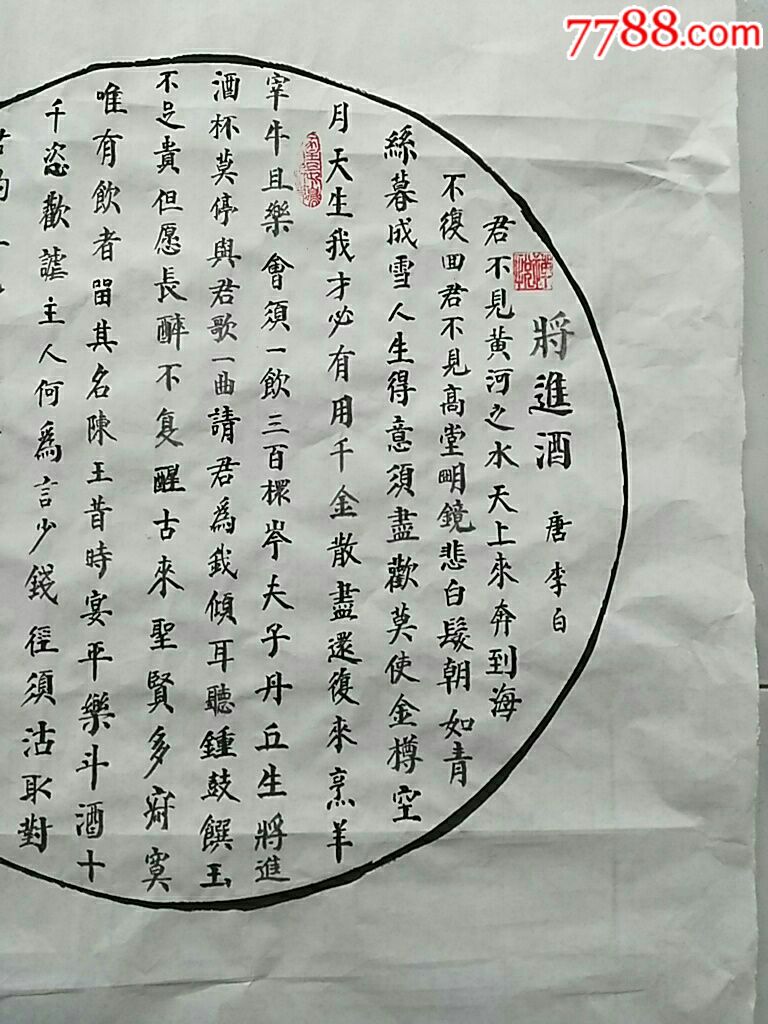 7788.com
將進酒
唐李白
君不見黄河之水天上來奔到海
不復回君不見高堂明鏡悲白髮朝如青
絲暮成雪人生得意須盡歡莫使金樽空
月天生我才必有用千金散盡還復來烹羊
宰牛且樂會須一飲三百杯岑夫子丹丘生將進
酒杯莫停與君歌一曲請君為我傾耳聽鍾鼓饌玉
不足貴但愿長醉不复醒古來聖賢多寂寞
唯有飲者留其名陳王昔時宴平樂斗酒十
千恣歡謔主人何為言少錢徑須沽取對